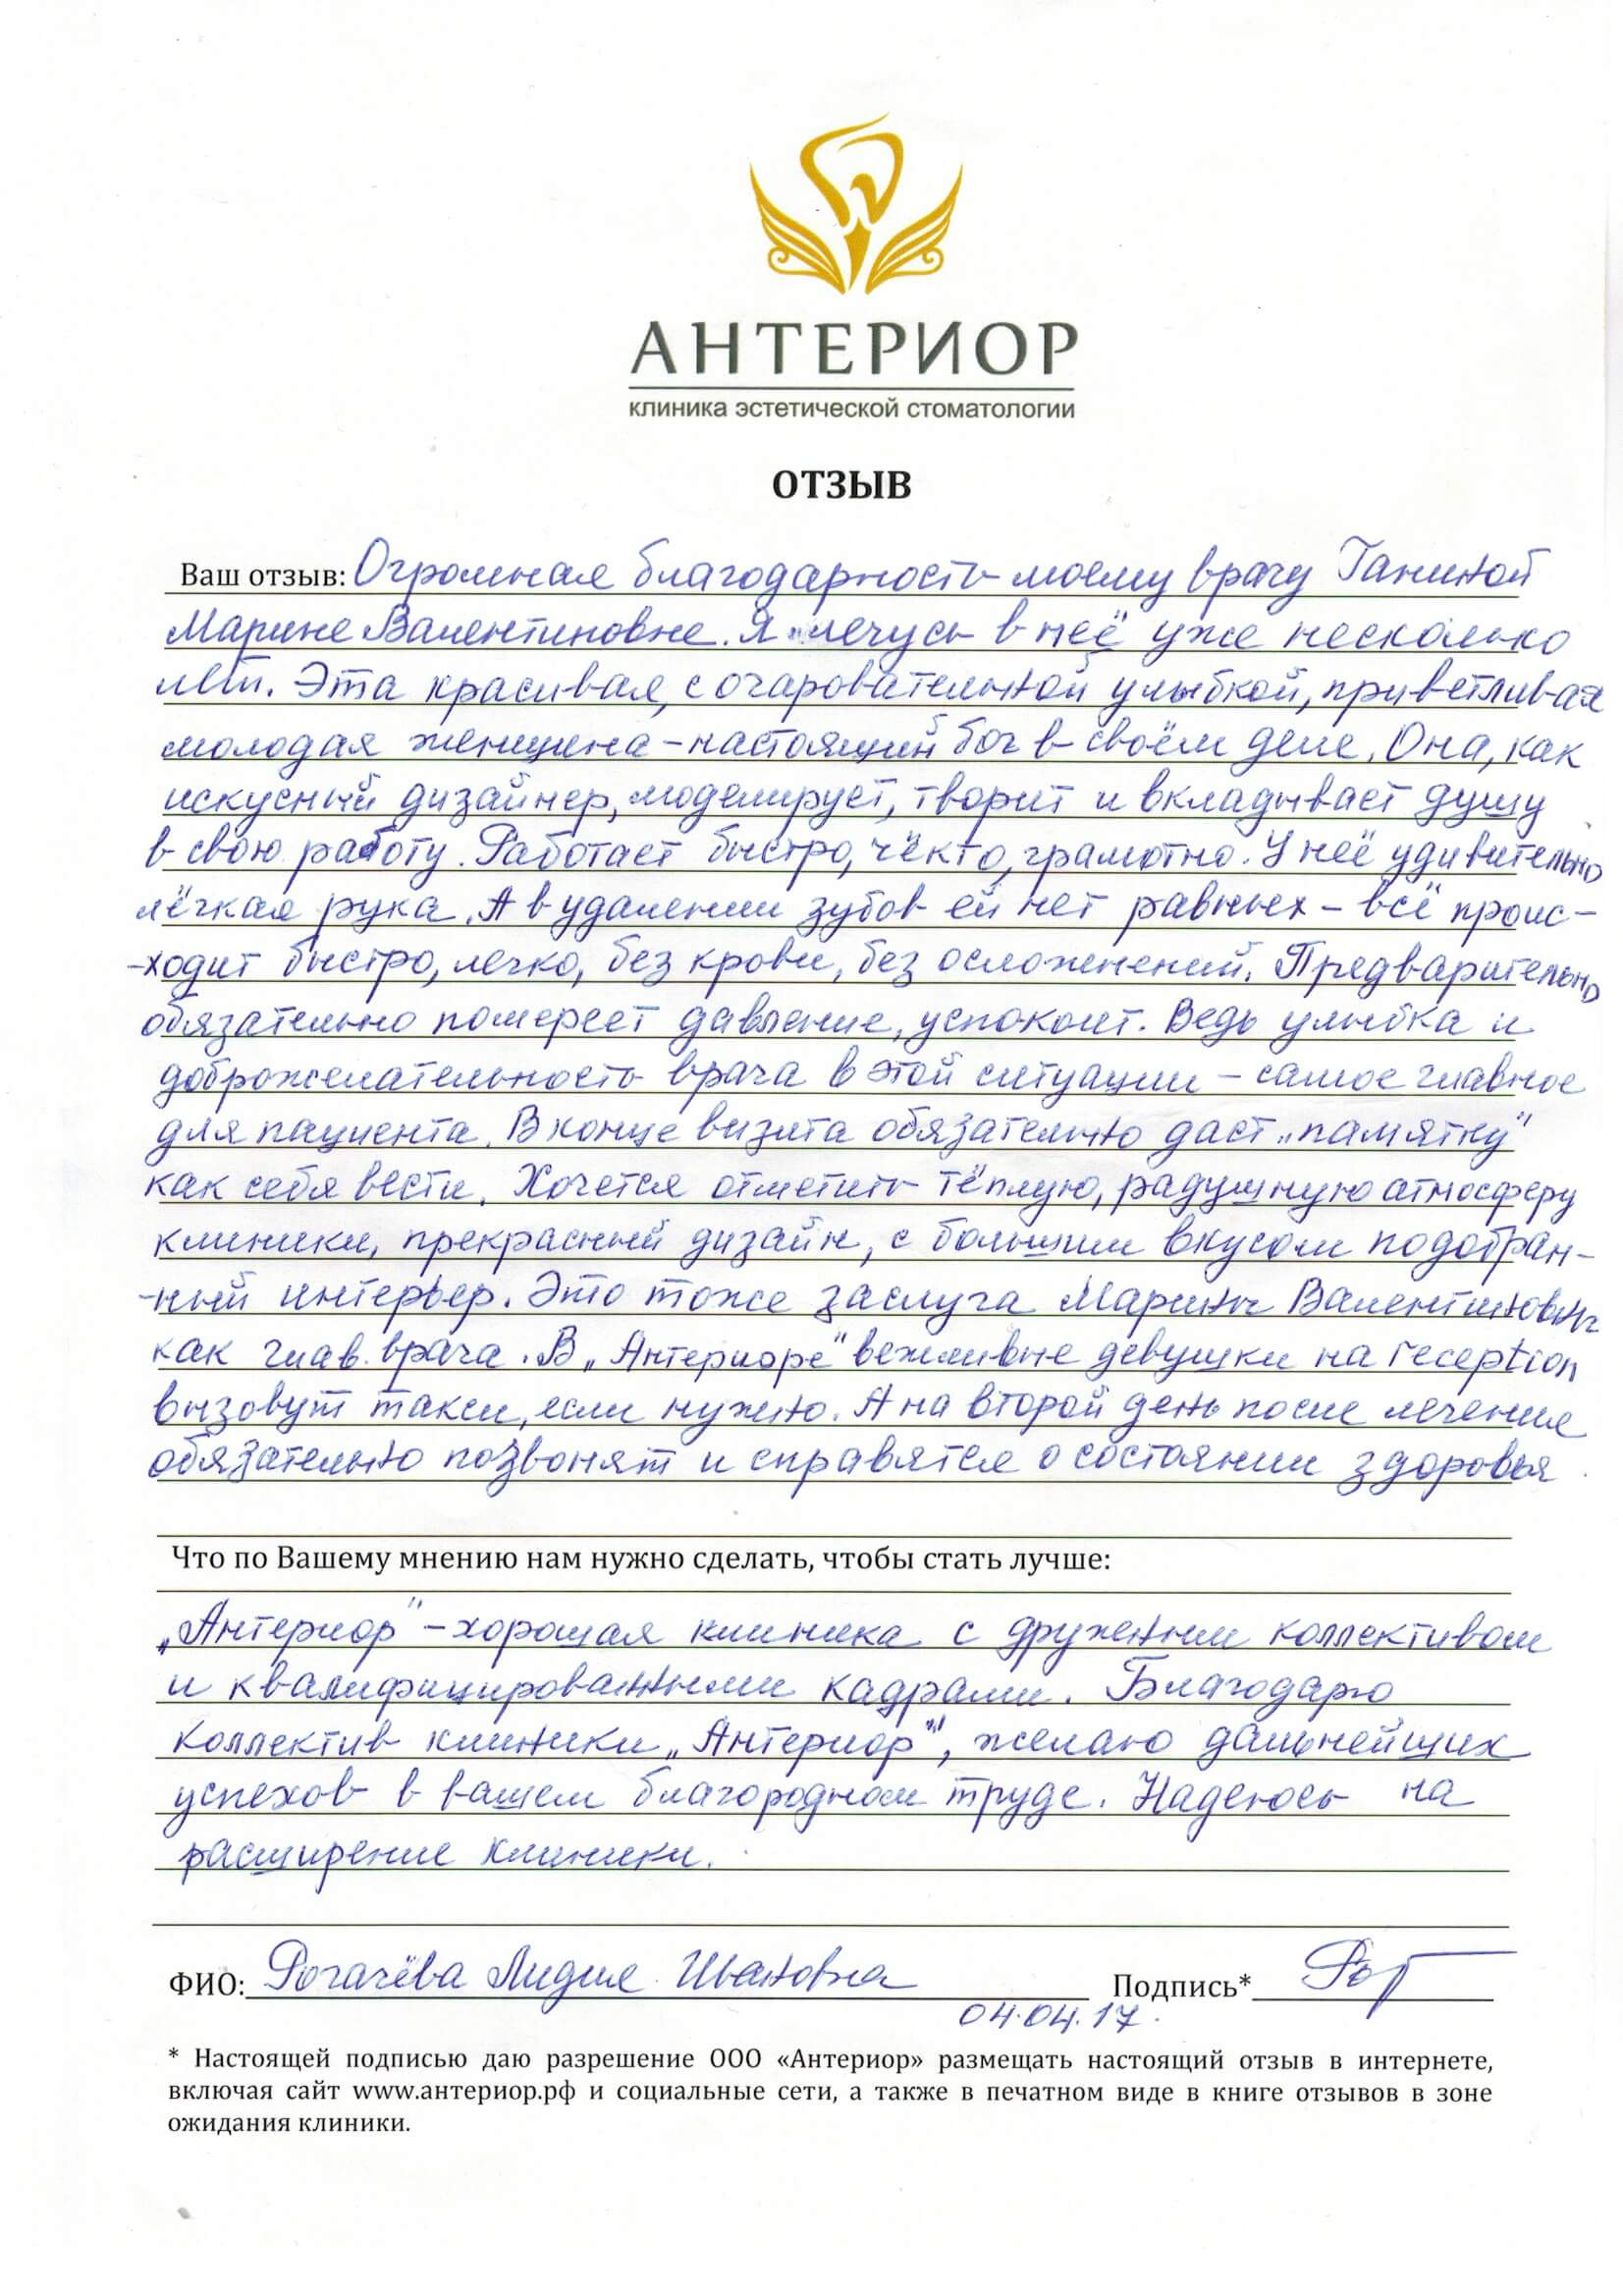 АНТЕРИОР
клиника эстетической стоматологии
ОТЗЫВ
Ваш отзыв: Огромная благодарность моему врачу Ганиной
Марине Валентиновне. Я лечусь в неё уже несколько
лет. Эта красивая, с очаровательной улыбкой, приветливая
молодая женщина – настоящий бог в своём деле. Она, как
искусный дизайнер, моделирует, творит и вкладывает душу
в свою работу. Работает быстро, чётко, грамотно. У неё удивительно
лёгкая рука. А в удалении зубов ей нет равных – всё проис-
-ходит быстро, легко, без крови, без осложнений. Предварительно
обязательно померeет давление, успокоит. Ведь улыбка и
доброжелательность врача в этой ситуации – самое главное
для пациента. В конце визита обязательно даст „памятку"
как себя вести. Хочется отметить тёплую, радушную атмосферу
клиники, прекрасный дизайн, с большим вкусом подобран-
-ный интерьер. Это тоже заслуга Марины Валентиновны
как глав. врача. В „Антериоре" вежливые девушки на reception
вызовут такси, если нужно. А на второй день после лечения
обязательно позвонят и справятся о состоянии здоровья.
Что по Вашему мнению нам нужно сделать, чтобы стать лучше:
„Антериор" – хорошая клиника с дружным коллективом
и квалифицированными кадрами. Благодарю
коллектив клиники „Антериор", желаю дальнейших
успехов в вашем благородном труде. Надеюсь на
расширение клиники.
ФИО: Рогачёва Лидия Ивановна Подпись* Рог
04.04.17.
* Настоящей подписью даю разрешение ООО «Антериор» размещать настоящий отзыв в интернете,
включая сайт www.антериор.рф и социальные сети, а также в печатном виде в книге отзывов в зоне
ожидания клиники.